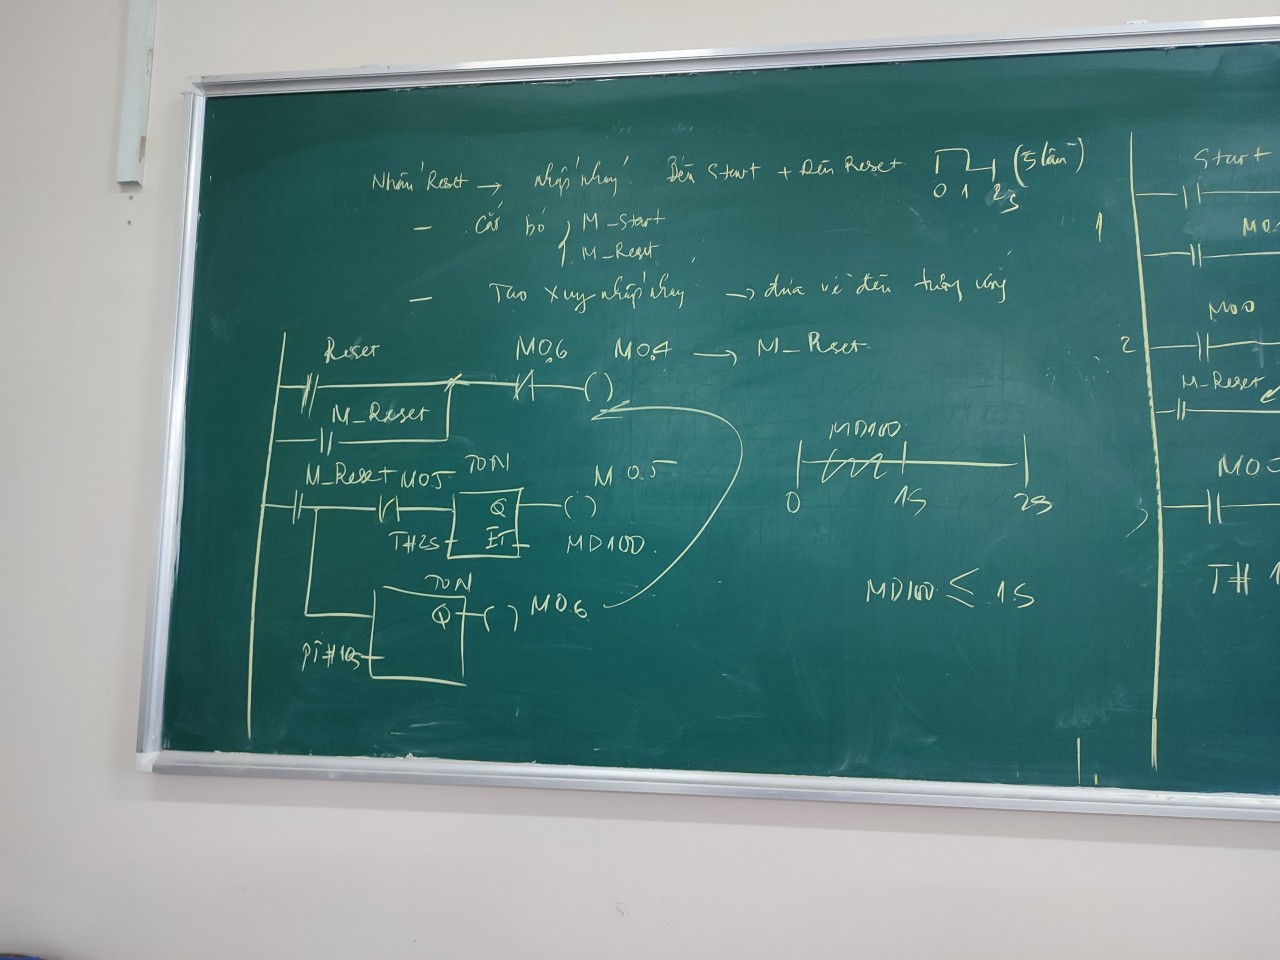 Nhấn Reset → nhấp nháy Đèn Start + Đèn Reset (5 lần)
0 1 2s
- Các bộ M_Start
M_Reset
- Tạo xung nhấp nháy → đưa về đèn tương ứng
Reset M0.6 M0.4 → M_Reset
( )
M_Reset
M_Reset M0.5 TON M0.5
Q ( )
T#2s ET MD100
TON
Q ( ) M0.6
PT#10s
MD100
0 1s 2s
MD100 ≤ 1s
Start
1
M0.
2 M0.0
M_Reset
M0.
T# 1